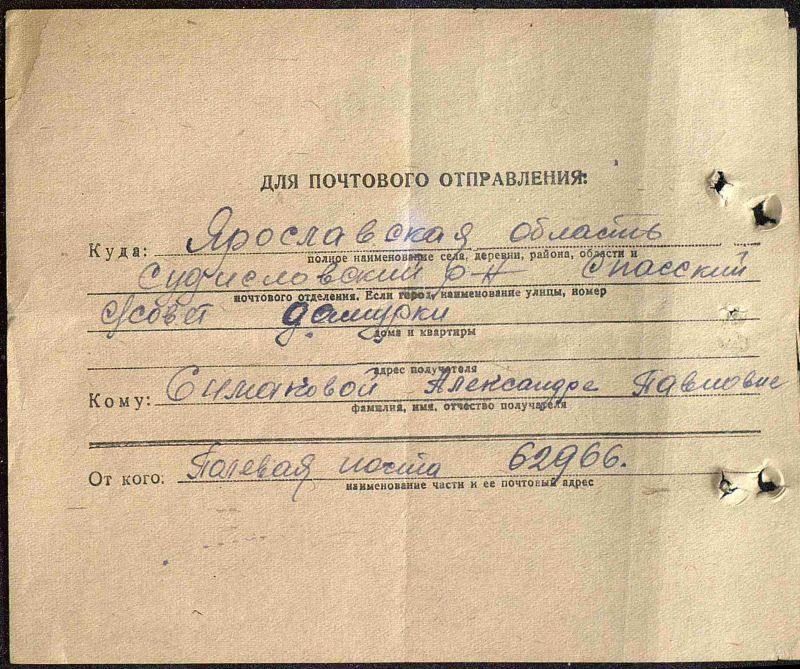 ДЛЯ ПОЧТОВОГО ОТПРАВЛЕНИЯ:
Куда: Ярославская область
полное наименование села, деревни, района, области и
Судиславский р-н Спасский
почтового отделения. Если город, наименование улицы, номер
с/совет
дома и квартиры
адрес получателя
Кому: Симаковой Александре Павловне
фамилия, имя, отчество получателя
От кого: Полевая почта 62966.
наименование части и ее почтовый адрес